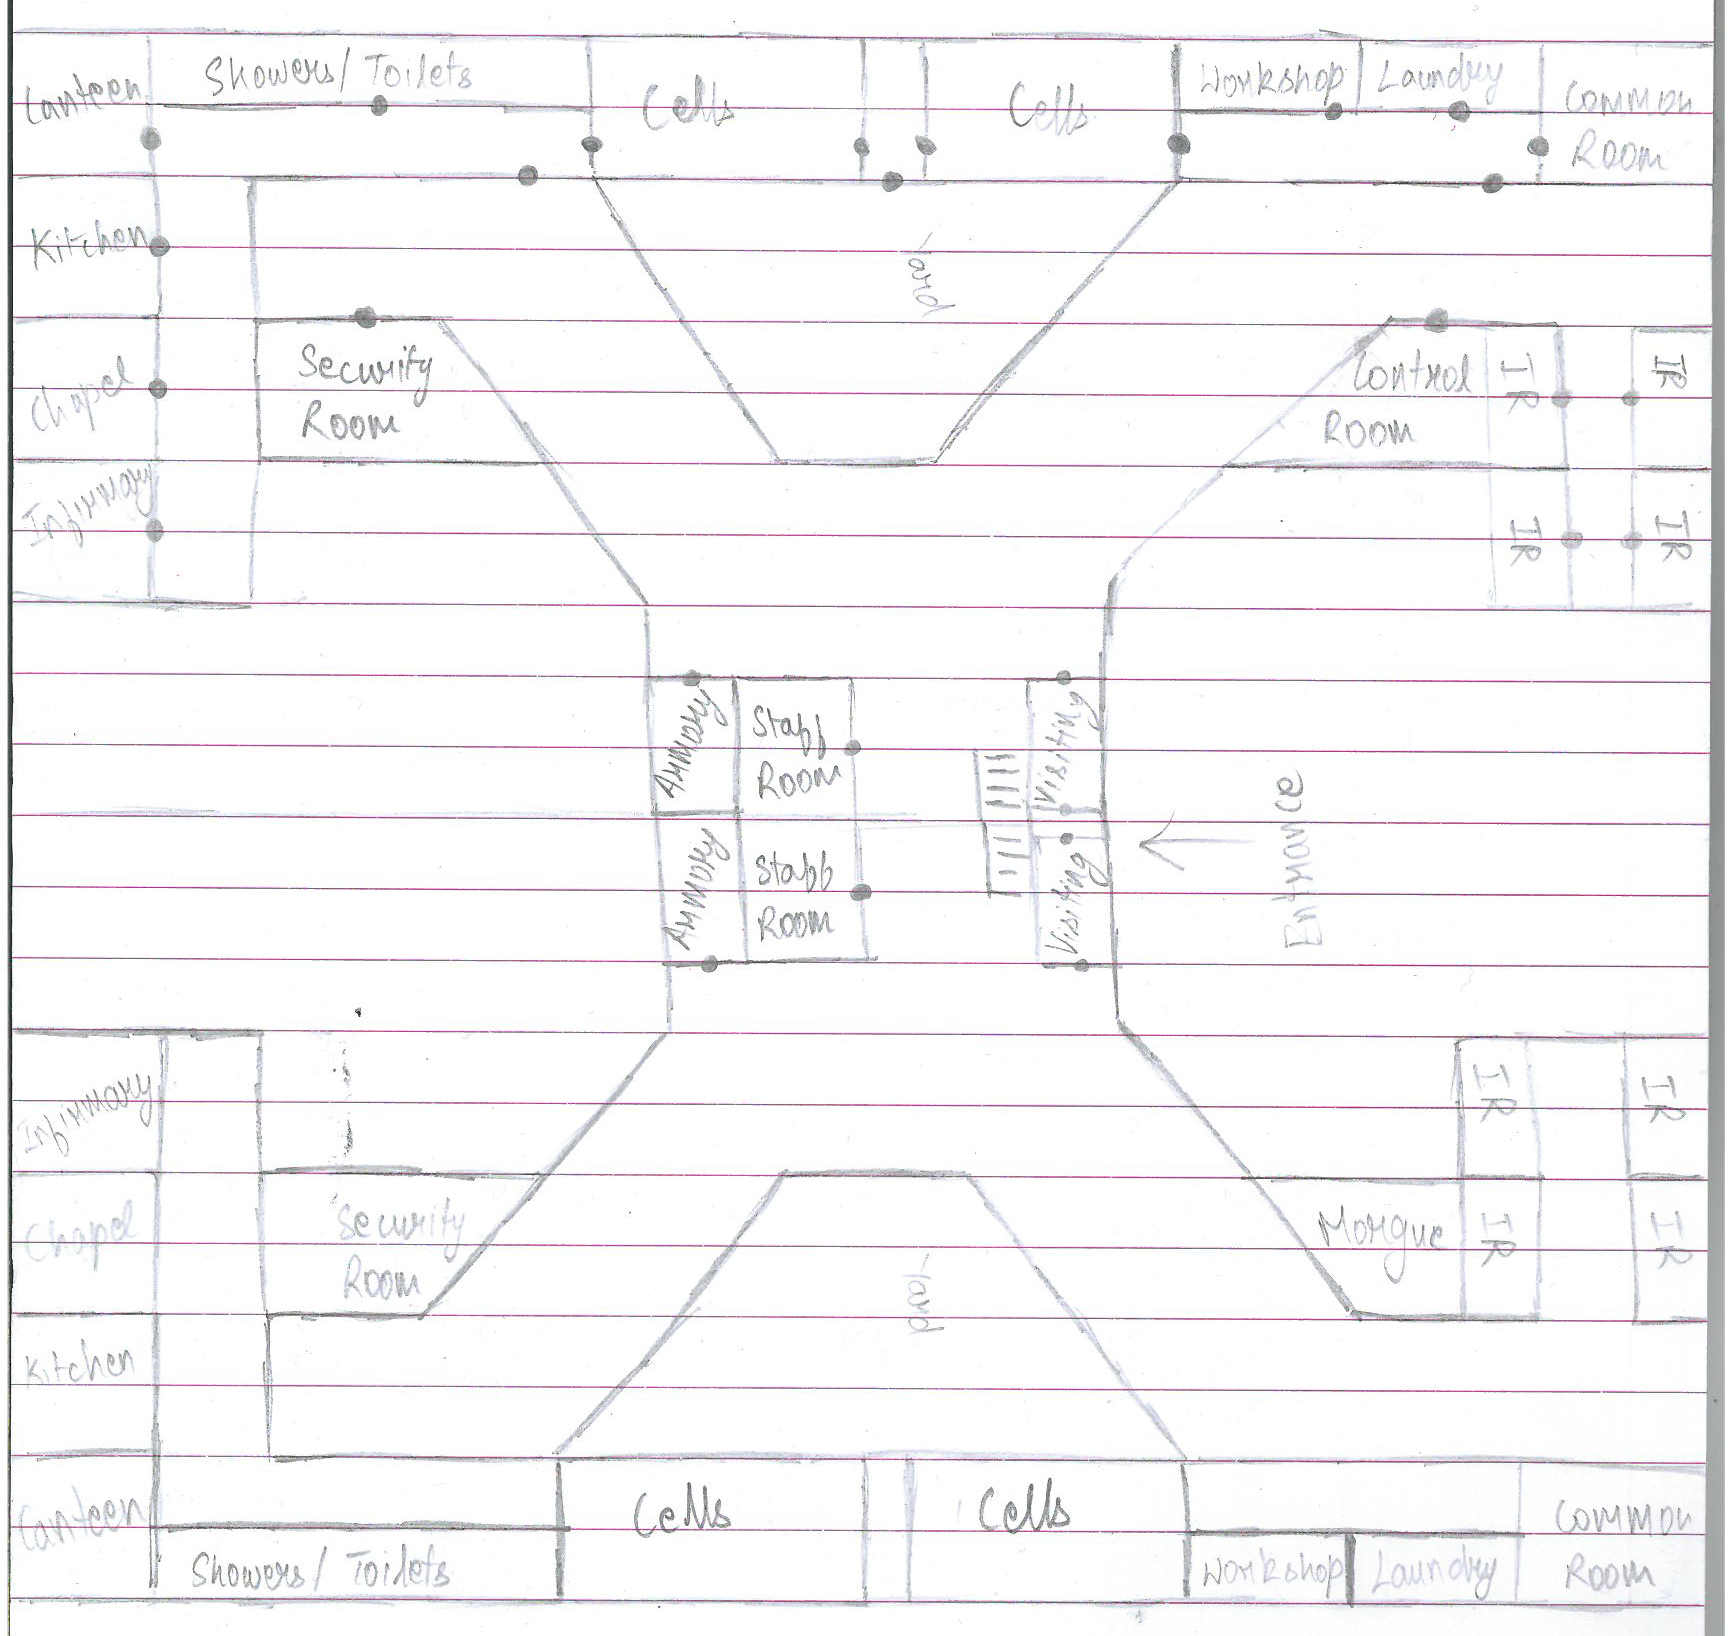 Canteen
Showers/ Toilets
Cells
Cells
Workshop
Laundry
Common
Room
Kitchen
Yard
Chapel
Security
Room
Control
Room
IR
IR
Infirmary
IR
IR
Armory
Staff
Room
Visiting
Armory
Staff
Room
Visiting
Entrance
Infirmary
IR
IR
Chapel
Security
Room
Yard
Morgue
IR
IR
Kitchen
Canteen
Showers/ Toilets
Cells
Cells
Workshop
Laundry
Common
Room